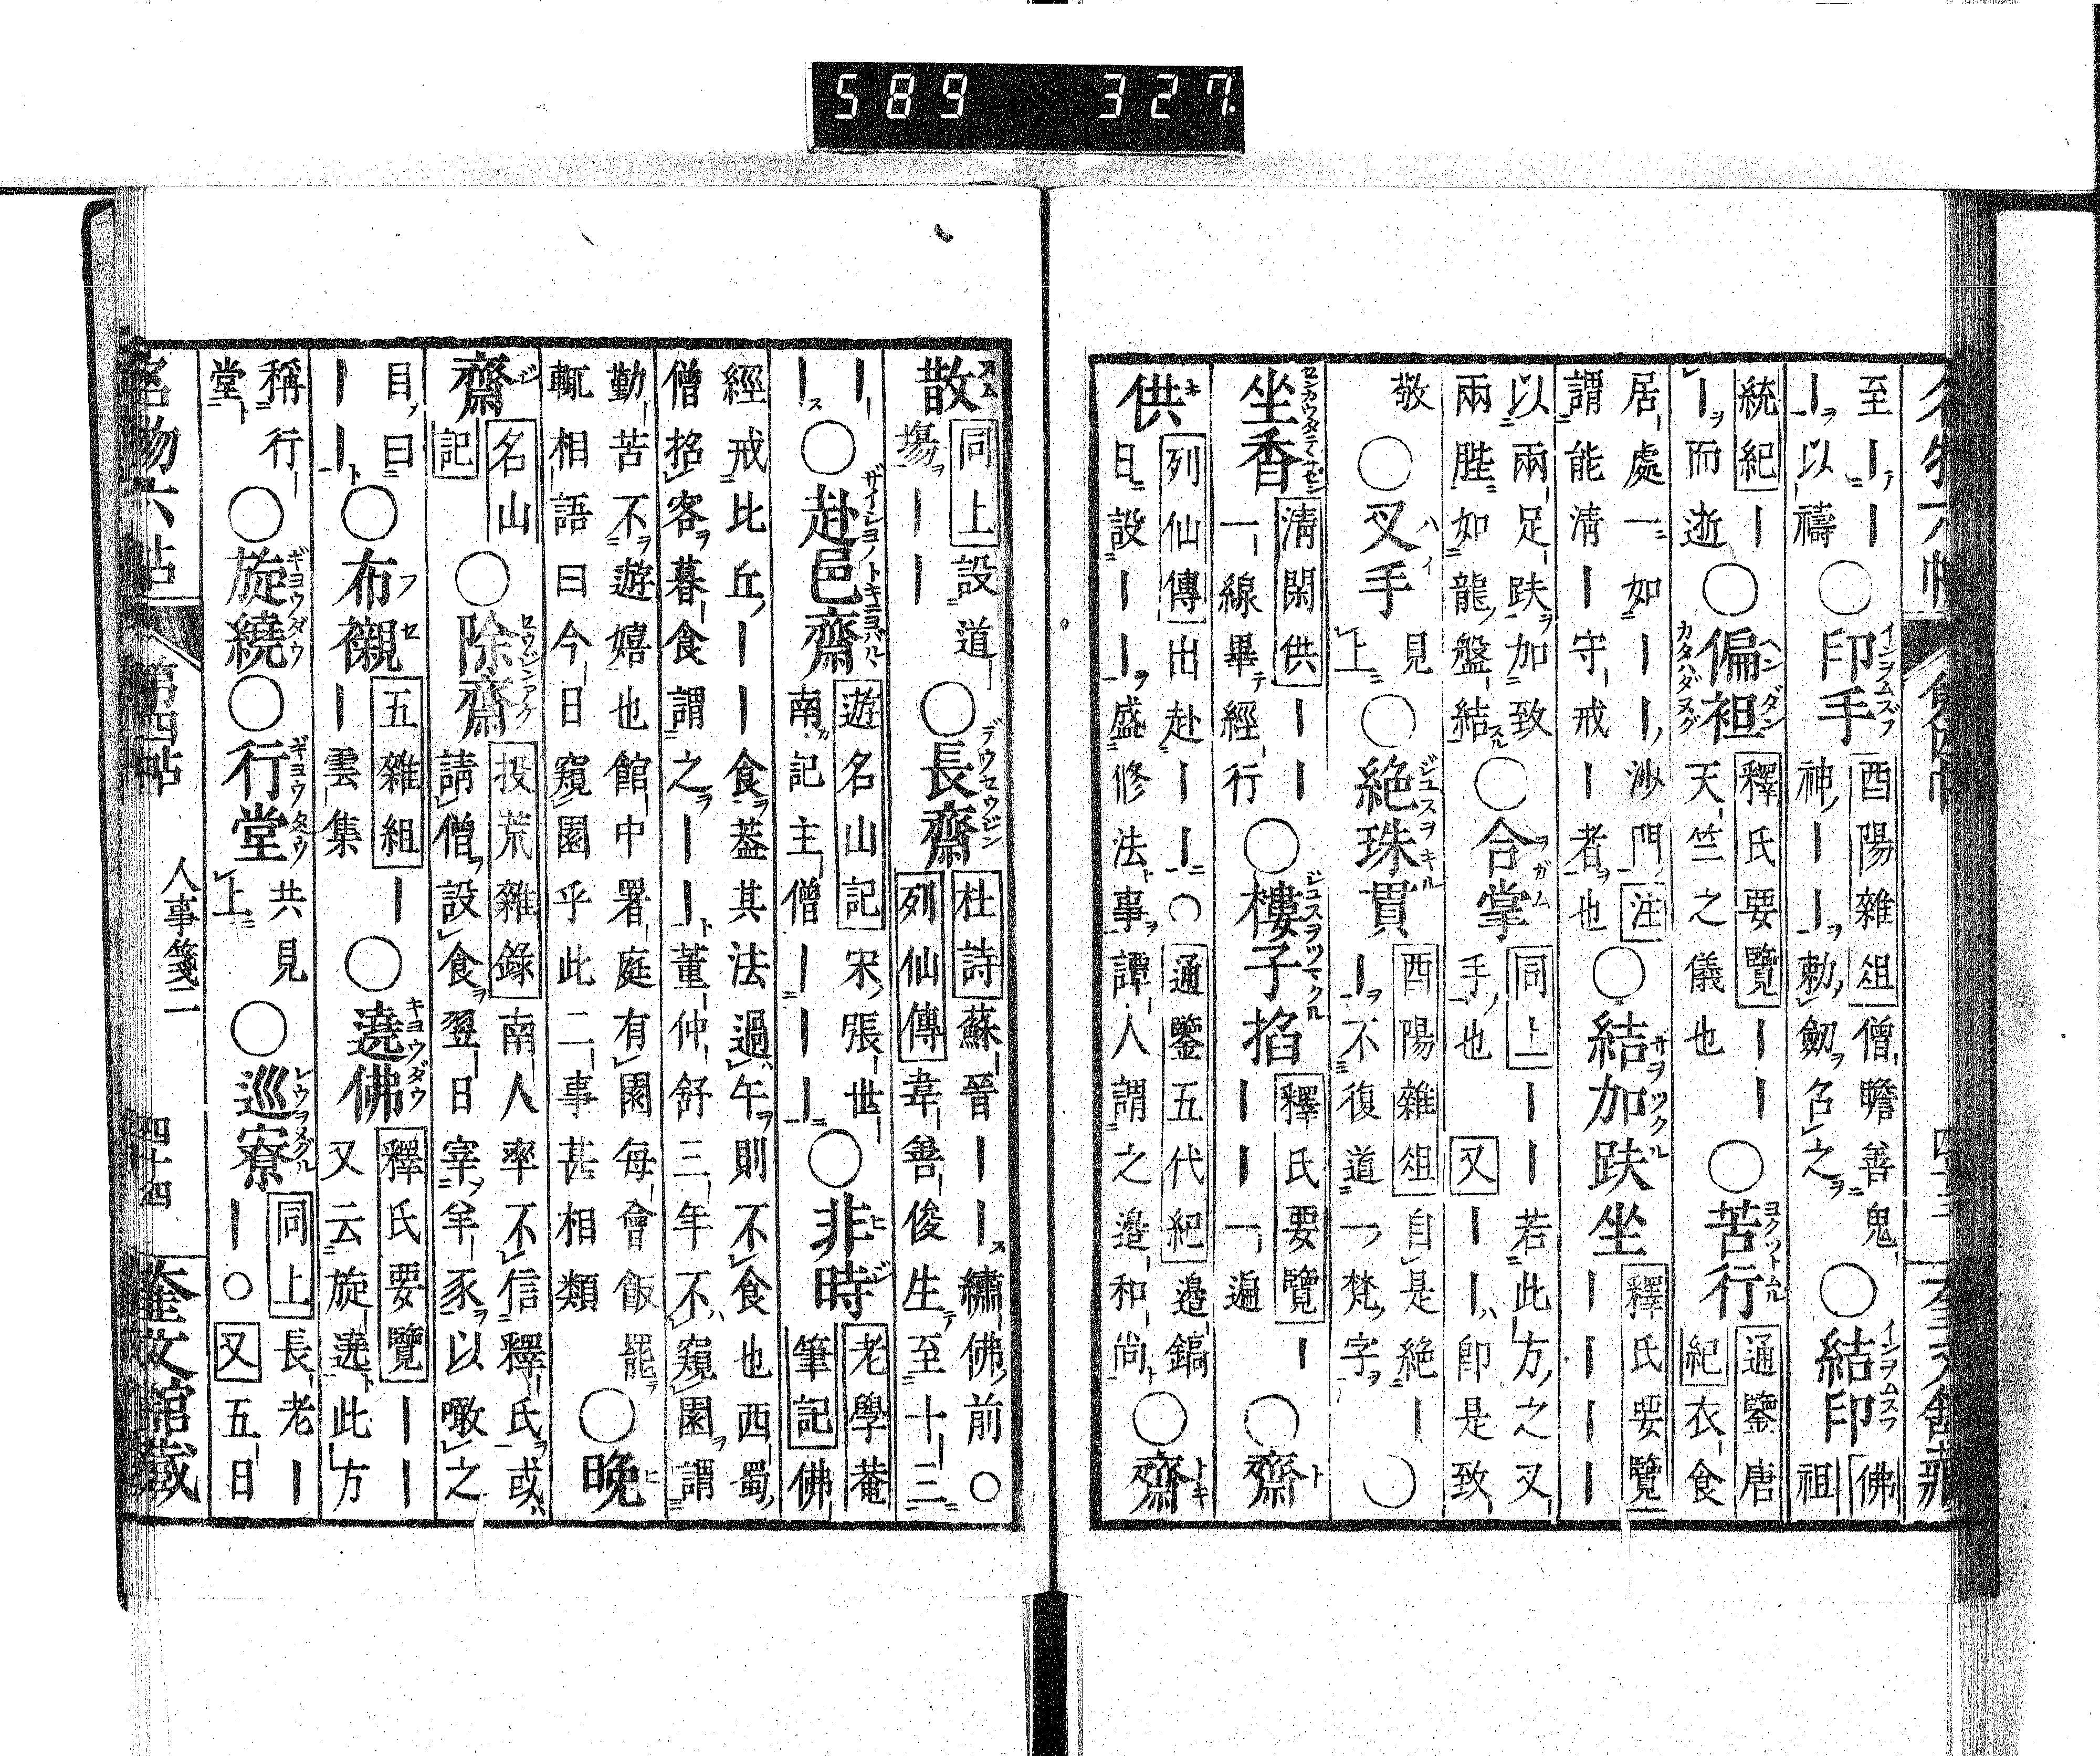 589 327
至｜｜｜以禱○印手酉陽雜俎僧瞻善鬼神｜｜勅劒召之○結印佛祖
統紀｜｜而逝○偏袒釋氏要覽｜｜天竺之儀也○苦行通鑒唐紀衣食
居處一如｜｜沙門注謂能清｜守戒｜者也○結加趺坐釋氏要覽｜｜｜｜
以兩足趺加致兩䏶如龍盤結○合掌同上｜｜若此方之叉手也又｜｜即是致
敬○叉手見上○絶珠貫酉陽雜俎自是絶｜｜不復道一梵字○
坐香清閑供｜｜一線畢經行○樓子掐釋氏要覽｜｜｜一遍○齋
供列仙傳出赴｜｜日設｜｜盛修法事○通鑒五代紀邉鎬譚人謂之邉和尚○齋
散同上設道塲｜｜○長齋杜詩蘇晉｜｜繡佛前○列仙傳韋善俊生至十三
｜｜○赴邑齋遊名山記宋張世南記主僧｜｜｜○非時老學菴筆記佛
經戒比丘｜｜食葢其法過午則不食也西蜀僧招客暮食謂之｜｜董仲舒三年不窺園謂
勤苦不遊嬉也館中署庭有園每會飯罷輒相語曰今日窺園乎此二事甚相類○晩
齋名山記○除齋投荒雜錄南人率不信釋氏或請僧設食翌日宰羊豕以噉之
目曰｜｜○布襯五雜組｜｜雲集○遶佛釋氏要覽｜｜又云旋遶此方
稱行堂○旋繞○行堂共見上○巡寮同上長老｜｜○又五日
名物六帖 第四帖 人事箋二 四十四 奎文館藏